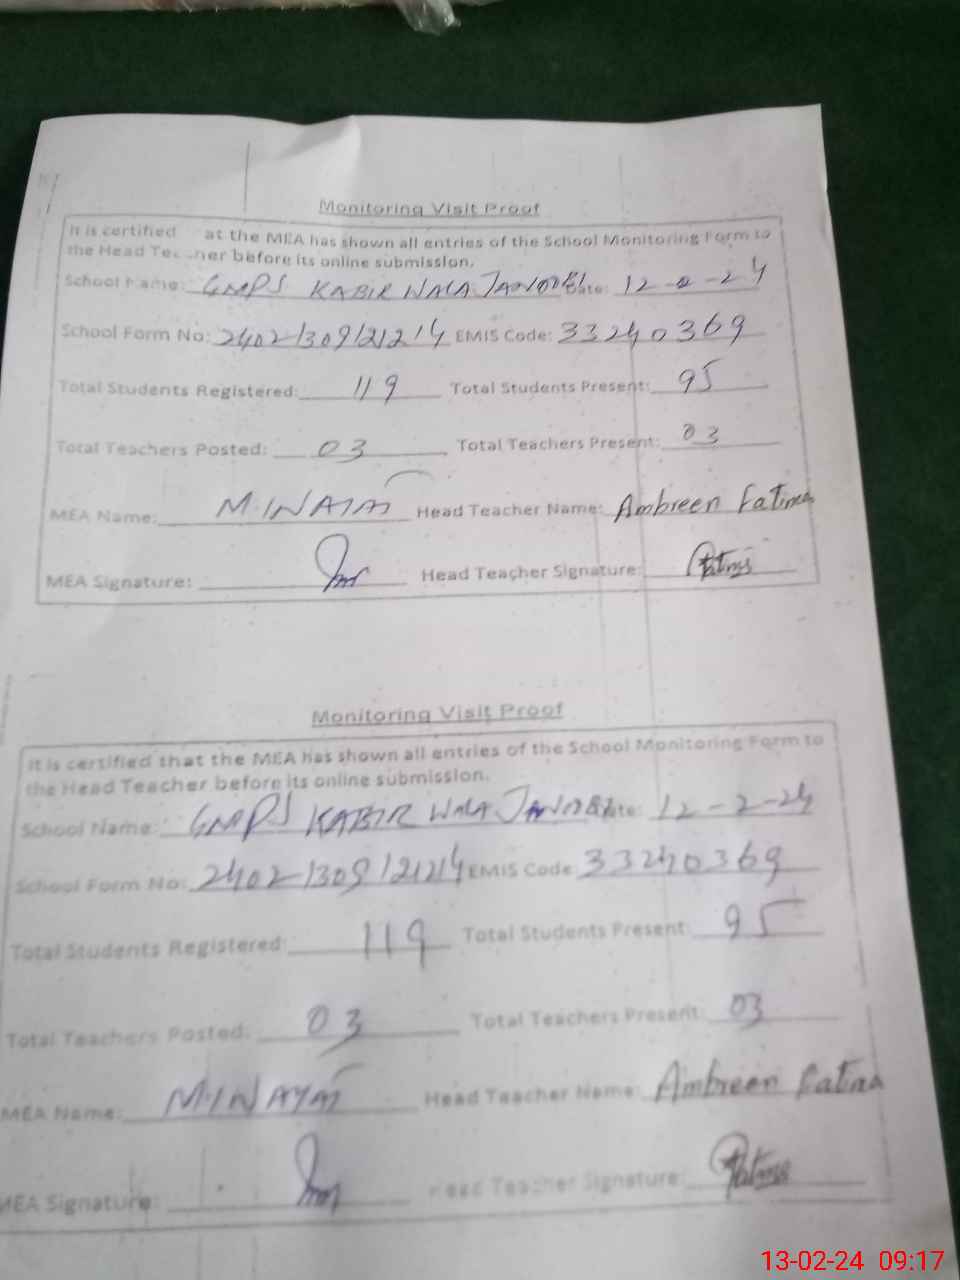 Monitoring Visit Proof
It is certified at the MEA has shown all entries of the School Monitoring Form to
the Head Teacher before its online submission.
School Name: GMPS KABIR WALA Date: 12-2-24
School Form No: 2402130912124 EMIS Code: 33240369
Total Students Registered: 119 Total Students Present: 95
Total Teachers Posted: 03 Total Teachers Present: 03
MEA Name: M.INAYAT Head Teacher Name: Ambreen Fatima
MEA Signature: Head Teacher Signature: Fatima
Monitoring Visit Proof
It is certified that the MEA has shown all entries of the School Monitoring Form to
the Head Teacher before its online submission.
School Name: GMPS KABIR WALA Date: 12-2-24
School Form No: EMIS Code: 33240369
Total Students Registered: 119 Total Students Present: 95
Total Teachers Posted: 03 Total Teachers Present: 03
MEA Name: M.INAYAT Head Teacher Name: Ambreen Fatima
MEA Signature: Head Teacher Signature: Fatima
13-02-24 09:17